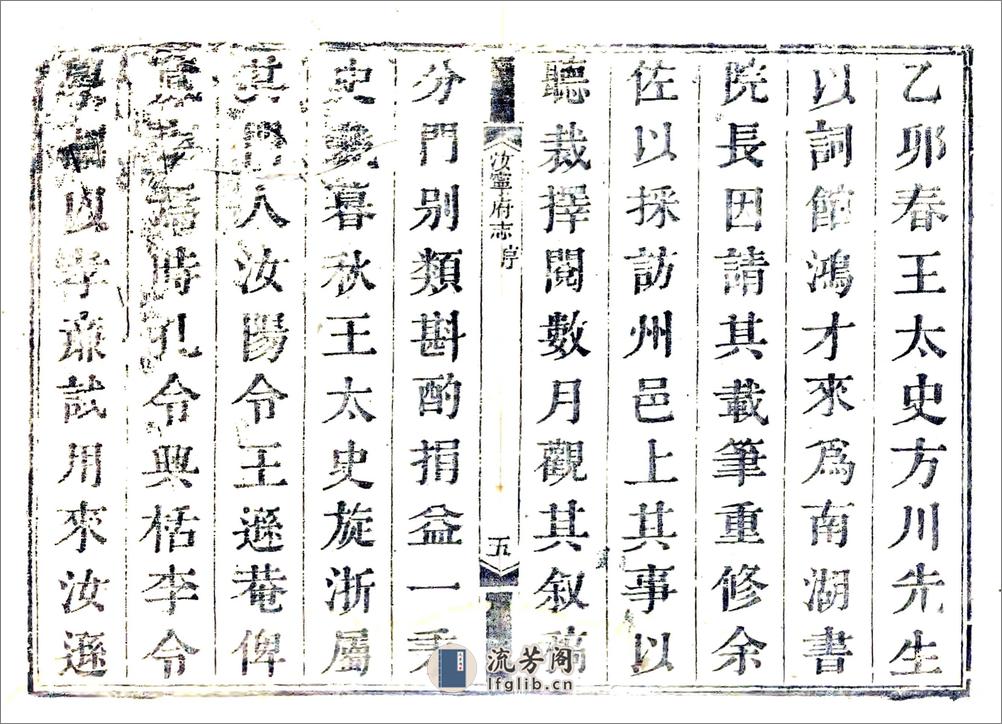 乙卯春王太史方川先生
以詞館鴻才來爲南湖書
院長因請其載筆重修余
佐以採訪州邑上其事以
聽裁擇閱數月觀其叙稿
汝寧府志 序
五
分門别類斟酌損益一秉
史裁暮秋王太史旋浙屬
其門人汝陽令王遜菴俾
時孔令興栝李令
孝廉試用來汝遜
流芳阁
lfglib.cn